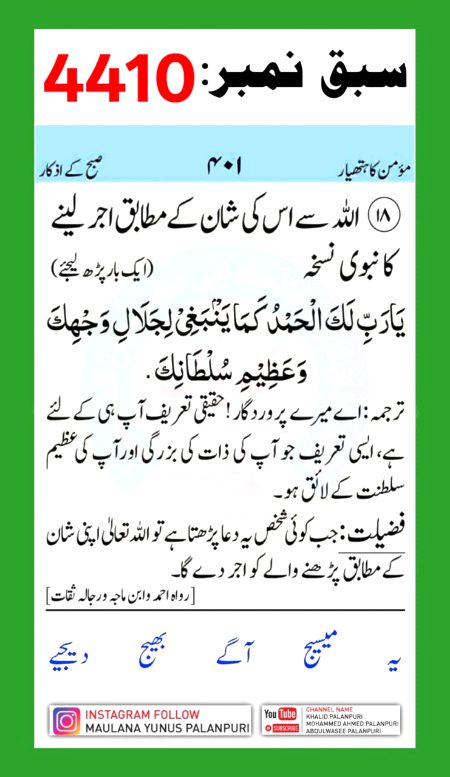 سبق نمبر: 4410
مؤمن کا ہتھیار ۴۰۱ صبح کے اذکار
۱۸ اللہ سے اس کی شان کے مطابق اجر لینے
کا نبوی نسخہ (ایک بار پڑھ لیجئے)
يَا رَبِّ لَكَ الْحَمْدُ كَمَا يَنْۢبَغِيْ لِجَلَالِ وَجْهِكَ
وَعَظِيْمِ سُلْطَانِكَ.
ترجمہ: اے میرے پروردگار! حقیقی تعریف آپ ہی کے لئے
ہے، ایسی تعریف جو آپ کی ذات کی بزرگی اور آپ کی عظیم
سلطنت کے لائق ہو۔
فضیلت: جب کوئی شخص یہ دعا پڑھتا ہے تو اللہ تعالیٰ اپنی شان
کے مطابق پڑھنے والے کو اجر دے گا۔
[رواه احمد وابن ماجہ ورجالہ ثقات]
یہ میسیج آگے بھیج دیجیے
INSTAGRAM FOLLOW
MAULANA YUNUS PALANPURI
You Tube
SUBSCRIBE
CHANNEL NAME
KHALID PALANPURI
MOHAMMED AHMED PALANPURI
ABDULWASEE PALANPURI